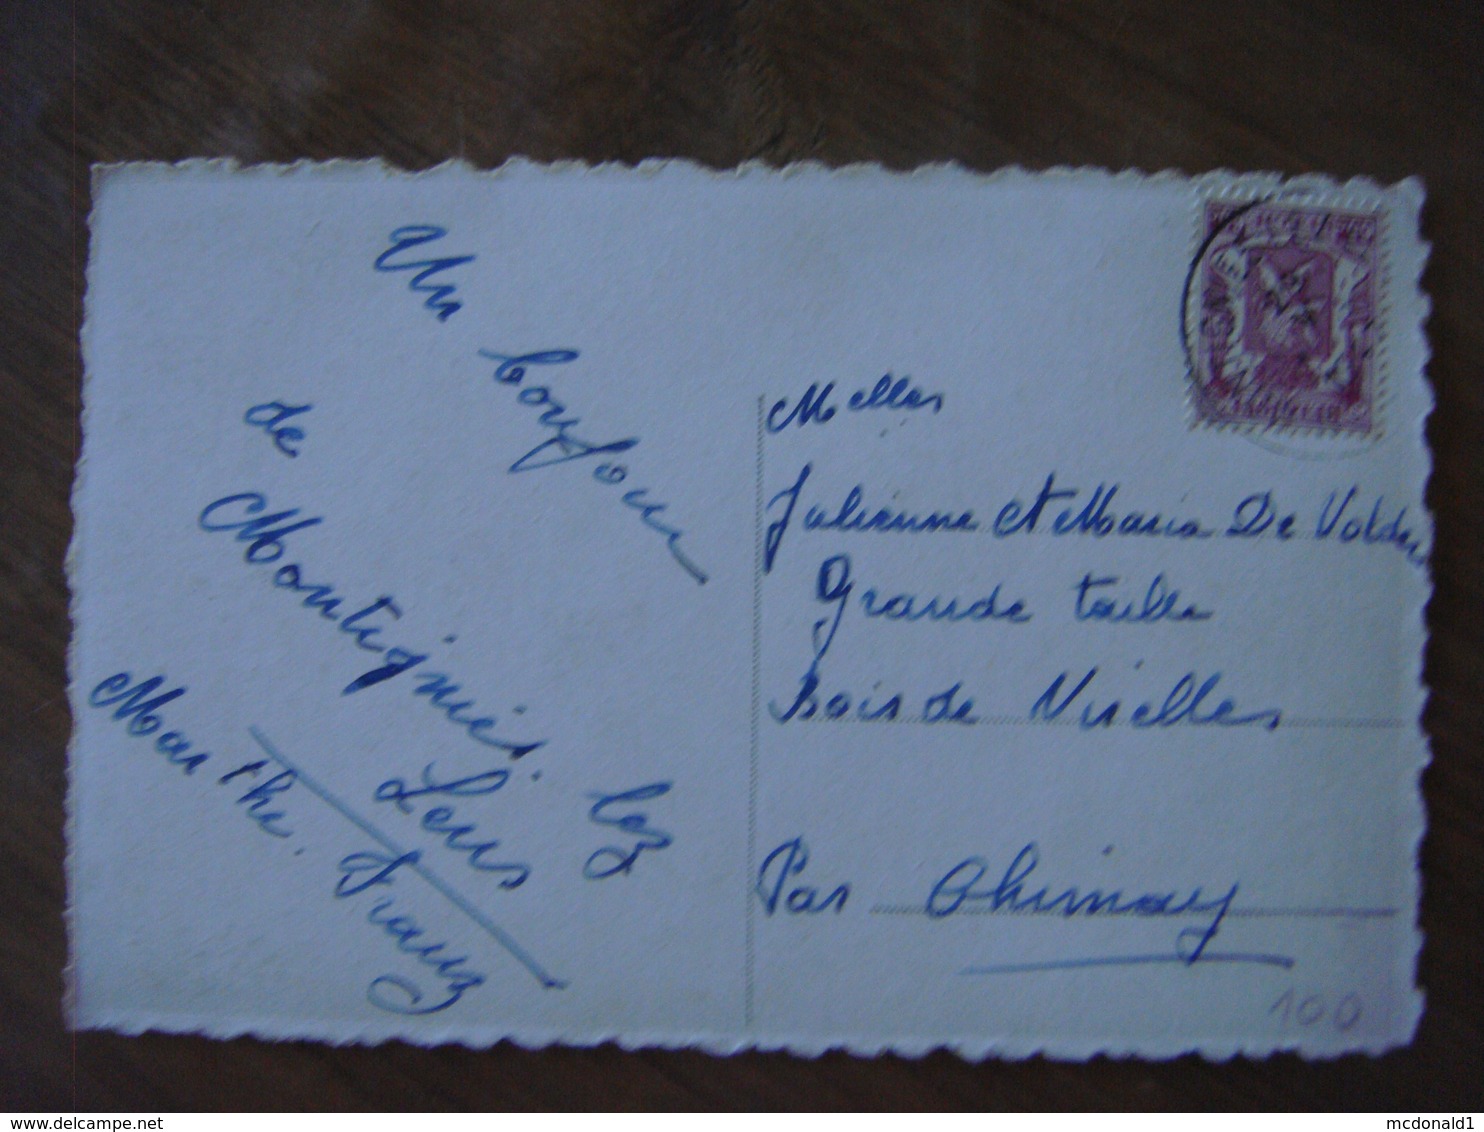 un bonjour
de
Montignies. lez
Lens
Marthe. Franz
Melles
Julienne et Maria De Volder
Grande taille
Bois de Virelles
Par Chimay
100
www.delcampe.net
mcdonald1